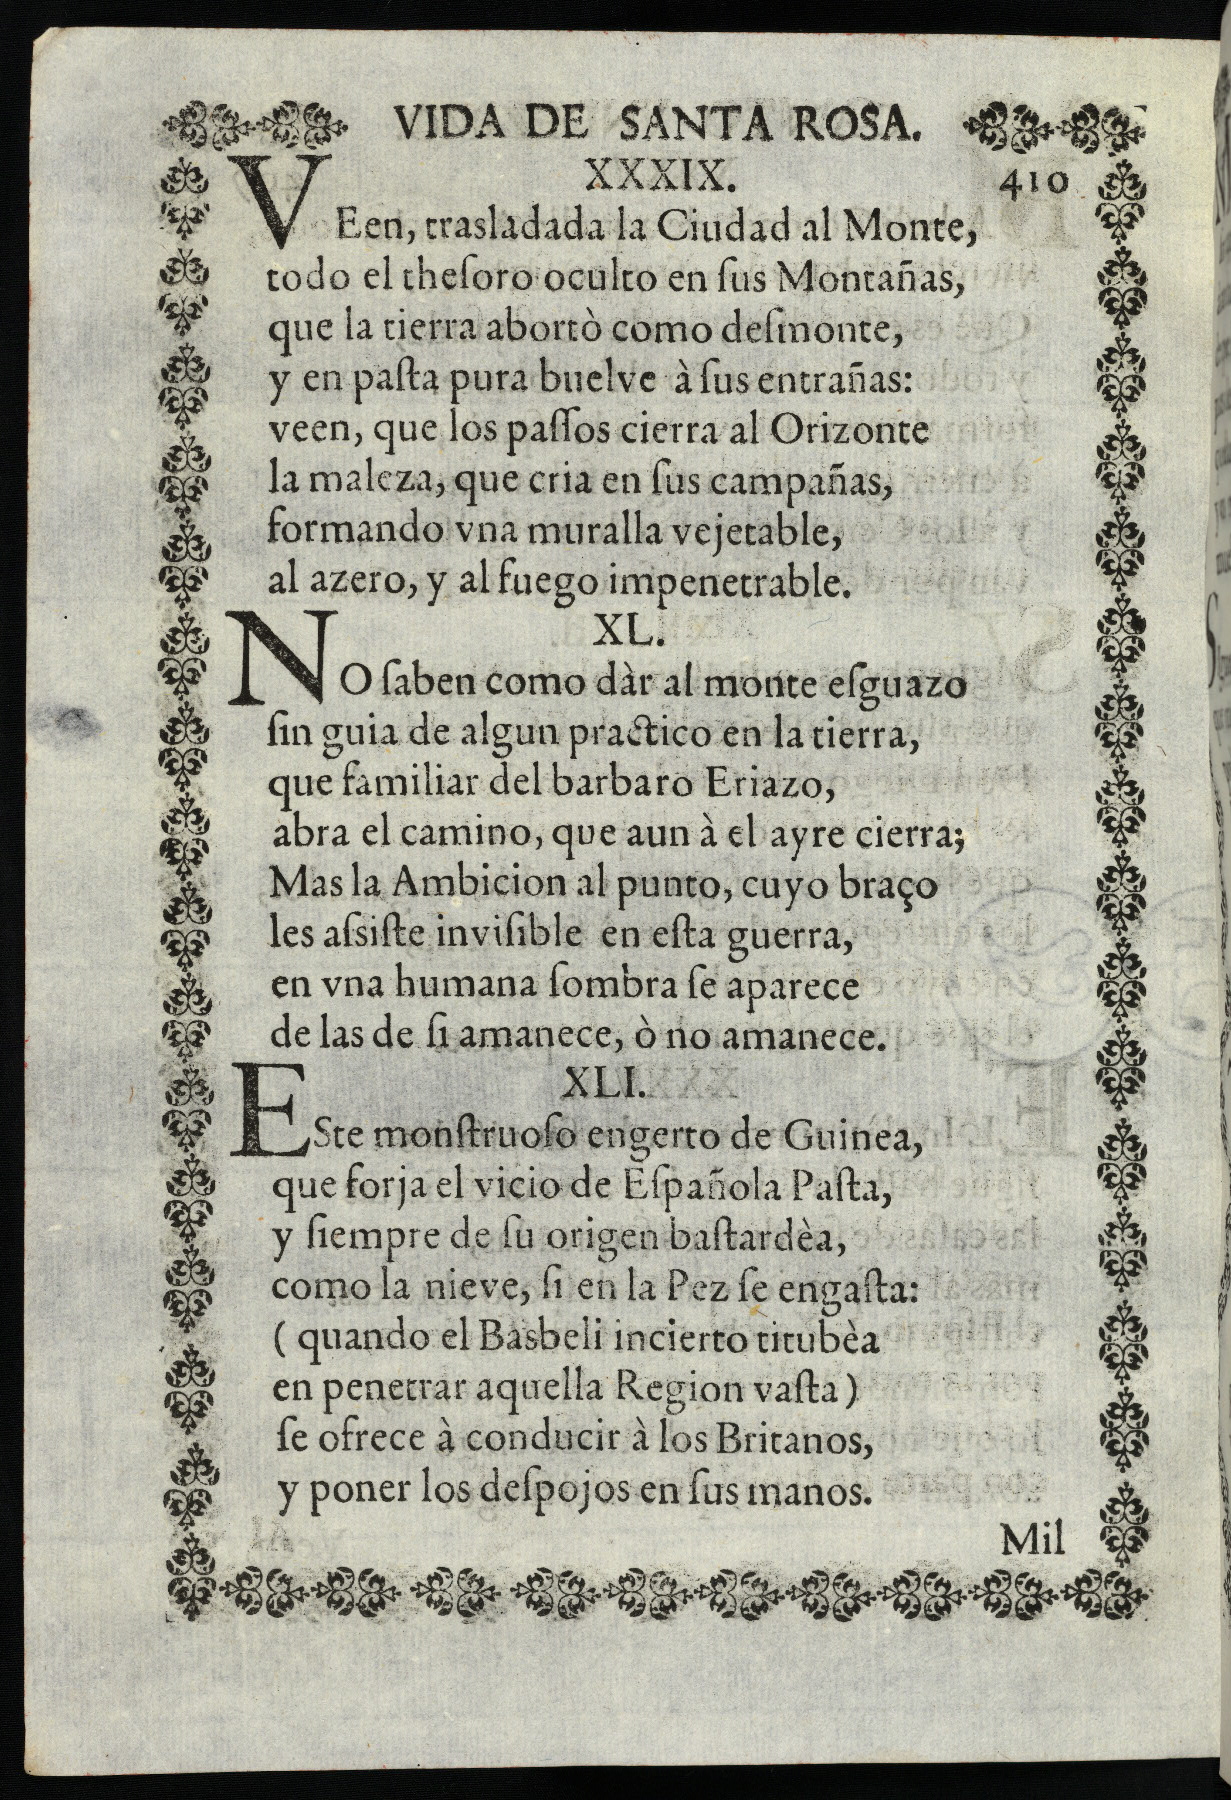 VIDA DE SANTA ROSA.
XXXIX. 410
VEen, trasladada la Ciudad al Monte,
todo el theſoro oculto en ſus Montañas,
que la tierra abortò como deſmonte,
y en paſta pura buelve à ſus entrañas:
veen, que los paſſos cierra al Orizonte
la maleza, que cria en ſus campañas,
formando vna muralla vejetable,
al azero, y al fuego impenetrable.
XL.
NO ſaben como dàr al monte eſguazo
ſin guia de algun practico en la tierra,
que familiar del barbaro Eriazo,
abra el camino, que aun à el ayre cierra;
Mas la Ambicion al punto, cuyo braço
les aſsiſte inviſible en eſta guerra,
en vna humana ſombra ſe aparece
de las de ſi amanece, ò no amanece.
XLI.
ESte monſtruoſo engerto de Guinea,
que forja el vicio de Eſpañola Paſta,
y ſiempre de ſu origen baſtardèa,
como la nieve, ſi en la Pez ſe engaſta:
( quando el Basbeli incierto titubèa
en penetrar aquella Region vaſta )
ſe ofrece à conducir à los Britanos,
y poner los deſpojos en ſus manos.
Mil